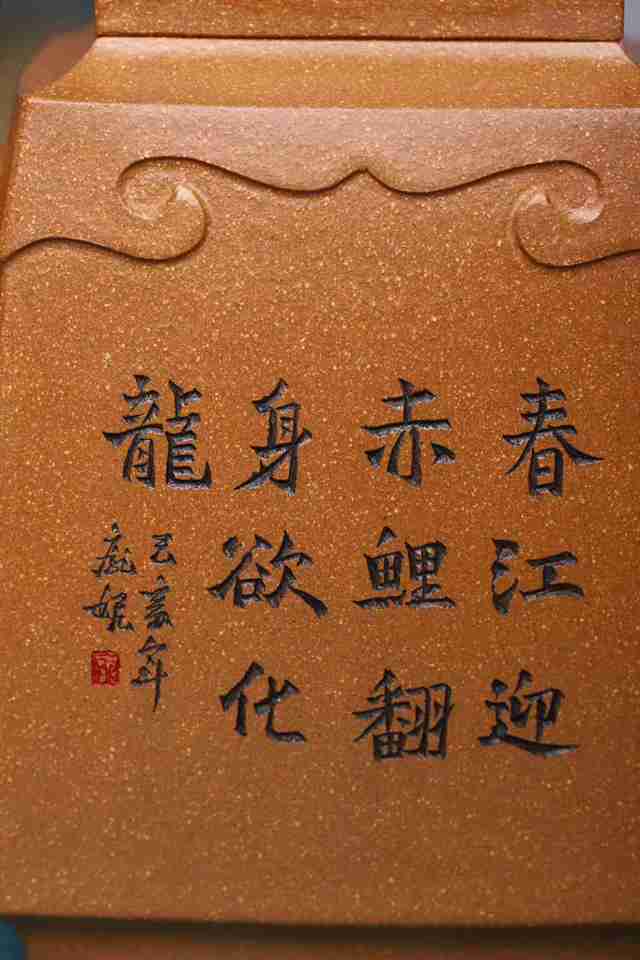 春江迎
赤鲤翻
身欲化
龍
己亥年